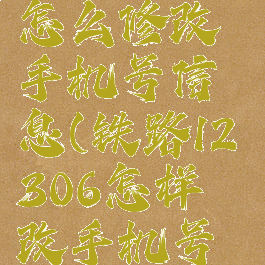 怎么修改
手机号信
息(铁路12
306怎样
改手机号